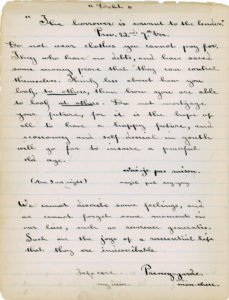 "Debt."
"The borrower is servant to the lender."
Prov. 22nd 7th Ver.
Do not wear clothes you cannot pay for.
They who have no debts, and have saved
some money prove that they can control
themselves. Think less about how you
look, to others, than how you are able
to look at others. Do not mortgage
your future, for it is the hope of
all to have a happy future, and
economy and self denial in youth
will go far to insure a peaceful
old age.
ai-je pas raison.
(Am I not right)
We cannot describe some feelings, and
we cannot forget some moments in
our lives, such as reverence generates.
Such are the joys of a sentimental life
that they are
Take care
Prenez-garde.
my dear.
mon chere.